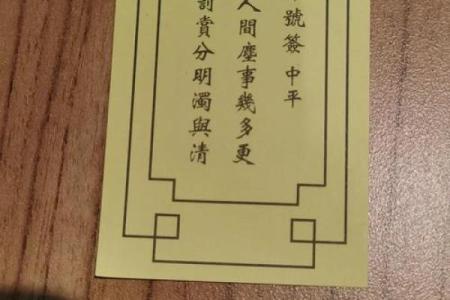 號簽 中平
人間塵事幾多更
罰賞分明濁與清